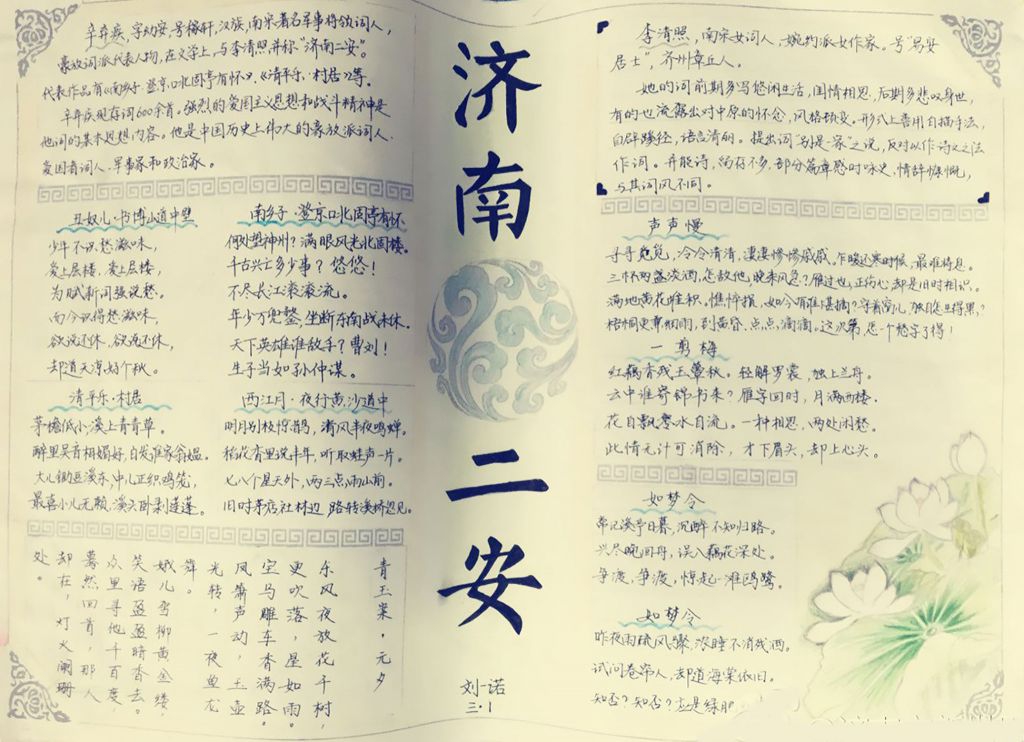 辛弃疾，字幼安，号稼轩，汉族，南宋著名军事将领词人，
豪放词派代表人物，在文学上，与李清照并称“济南二安”。
代表作品有《南乡子·登京口北固亭有怀》，《清平乐·村居》等。
辛弃疾现存词600余首。强烈的爱国主义思想和战斗精神是
他词的基本思想内容。他是中国历史上伟大的豪放派词人、
爱国者词人、军事家和政治家。
丑奴儿·书博山道中壁
少年不识愁滋味，
爱上层楼，爱上层楼，
为赋新词强说愁。
而今识得愁滋味，
欲说还休，欲说还休，
却道天凉好个秋。
南乡子·登京口北固亭有怀
何处望神州？满眼风光北固楼。
千古兴亡多少事？悠悠！
不尽长江滚滚流。
年少万兜鍪，坐断东南战未休。
天下英雄谁敌手？曹刘！
生子当如孙仲谋。
清平乐·村居
茅檐低小，溪上青青草。
醉里吴音相媚好，白发谁家翁媪。
大儿锄豆溪东，中儿正织鸡笼，
最喜小儿无赖，溪头卧剥莲蓬。
西江月·夜行黄沙道中
明月别枝惊鹊，清风半夜鸣蝉。
稻花香里说丰年，听取蛙声一片。
七八个星天外，两三点雨山前。
旧时茅店社林边，路转溪桥忽见。
青玉案·元夕
东风夜放花千树，
更吹落，星如雨。
宝马雕车香满路。
凤箫声动，玉壶
光转，一夜鱼龙
舞。
蛾儿雪柳黄金缕，
笑语盈盈暗香去。
众里寻他千百度，
蓦然回首，那人
却在，灯火阑珊
处。
济南二安
刘一诺
三·1
李清照，南宋女词人，婉约派女作家。号“易安
居士”，济州章丘人。
她的词前期多写悠闲生活，闺情相思，后期多悲叹身世，
有的也流露出对中原的怀念，风格顿变。形式上善用白描手法，
自辟蹊径，语言清丽。提出词“别是一家”之说，反对以作诗文之法
作词。并能诗，留存不多，部分篇章感时咏史，情辞慷慨，
与其词风不同。
声声慢
寻寻觅觅，冷冷清清，凄凄惨惨戚戚。乍暖还寒时候，最难将息。
三杯两盏淡酒，怎敌他，晚来风急？雁过也，正伤心，却是旧时相识。
满地黄花堆积。憔悴损，如今有谁堪摘？守着窗儿，独自怎生得黑？
梧桐更兼细雨，到黄昏，点点滴滴。这次第，怎一个愁字了得！
一剪梅
红藕香残玉簟秋。轻解罗裳，独上兰舟。
云中谁寄锦书来？雁字回时，月满西楼。
花自飘零水自流。一种相思，两处闲愁。
此情无计可消除，才下眉头，却上心头。
如梦令
常记溪亭日暮，沉醉不知归路。
兴尽晚回舟，误入藕花深处。
争渡，争渡，惊起一滩鸥鹭。
如梦令
昨夜雨疏风骤，浓睡不消残酒。
试问卷帘人，却道海棠依旧。
知否？知否？应是绿肥